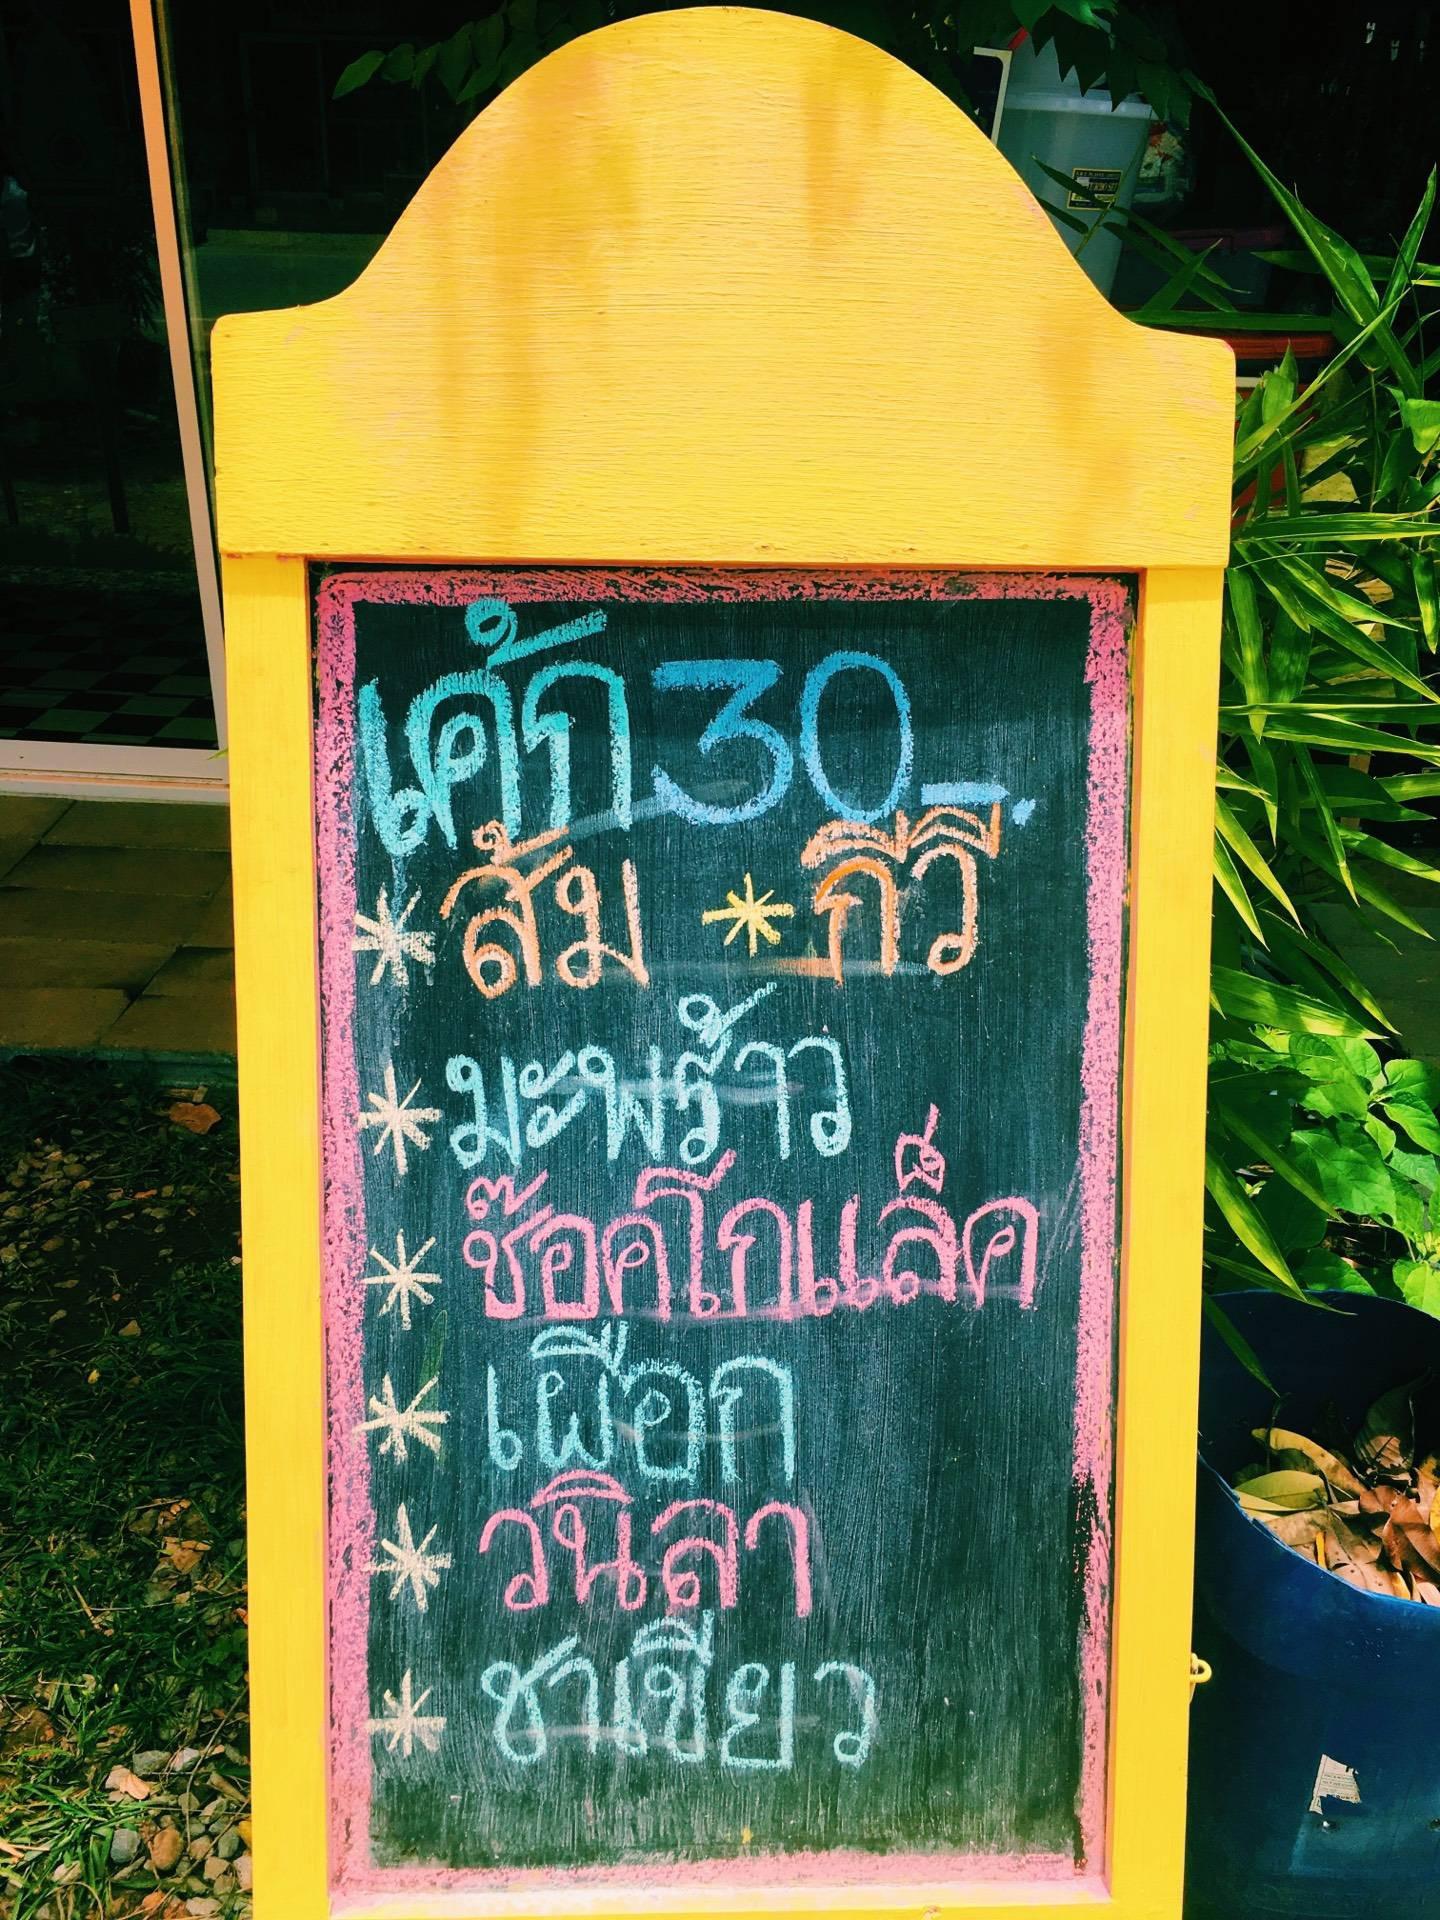 เค้ก 30_.
* ส้ม * กีวี
* มะพร้าว
* ช๊อคโกแล็ค
* เผือก
* วนิลา
* ชาเขียว